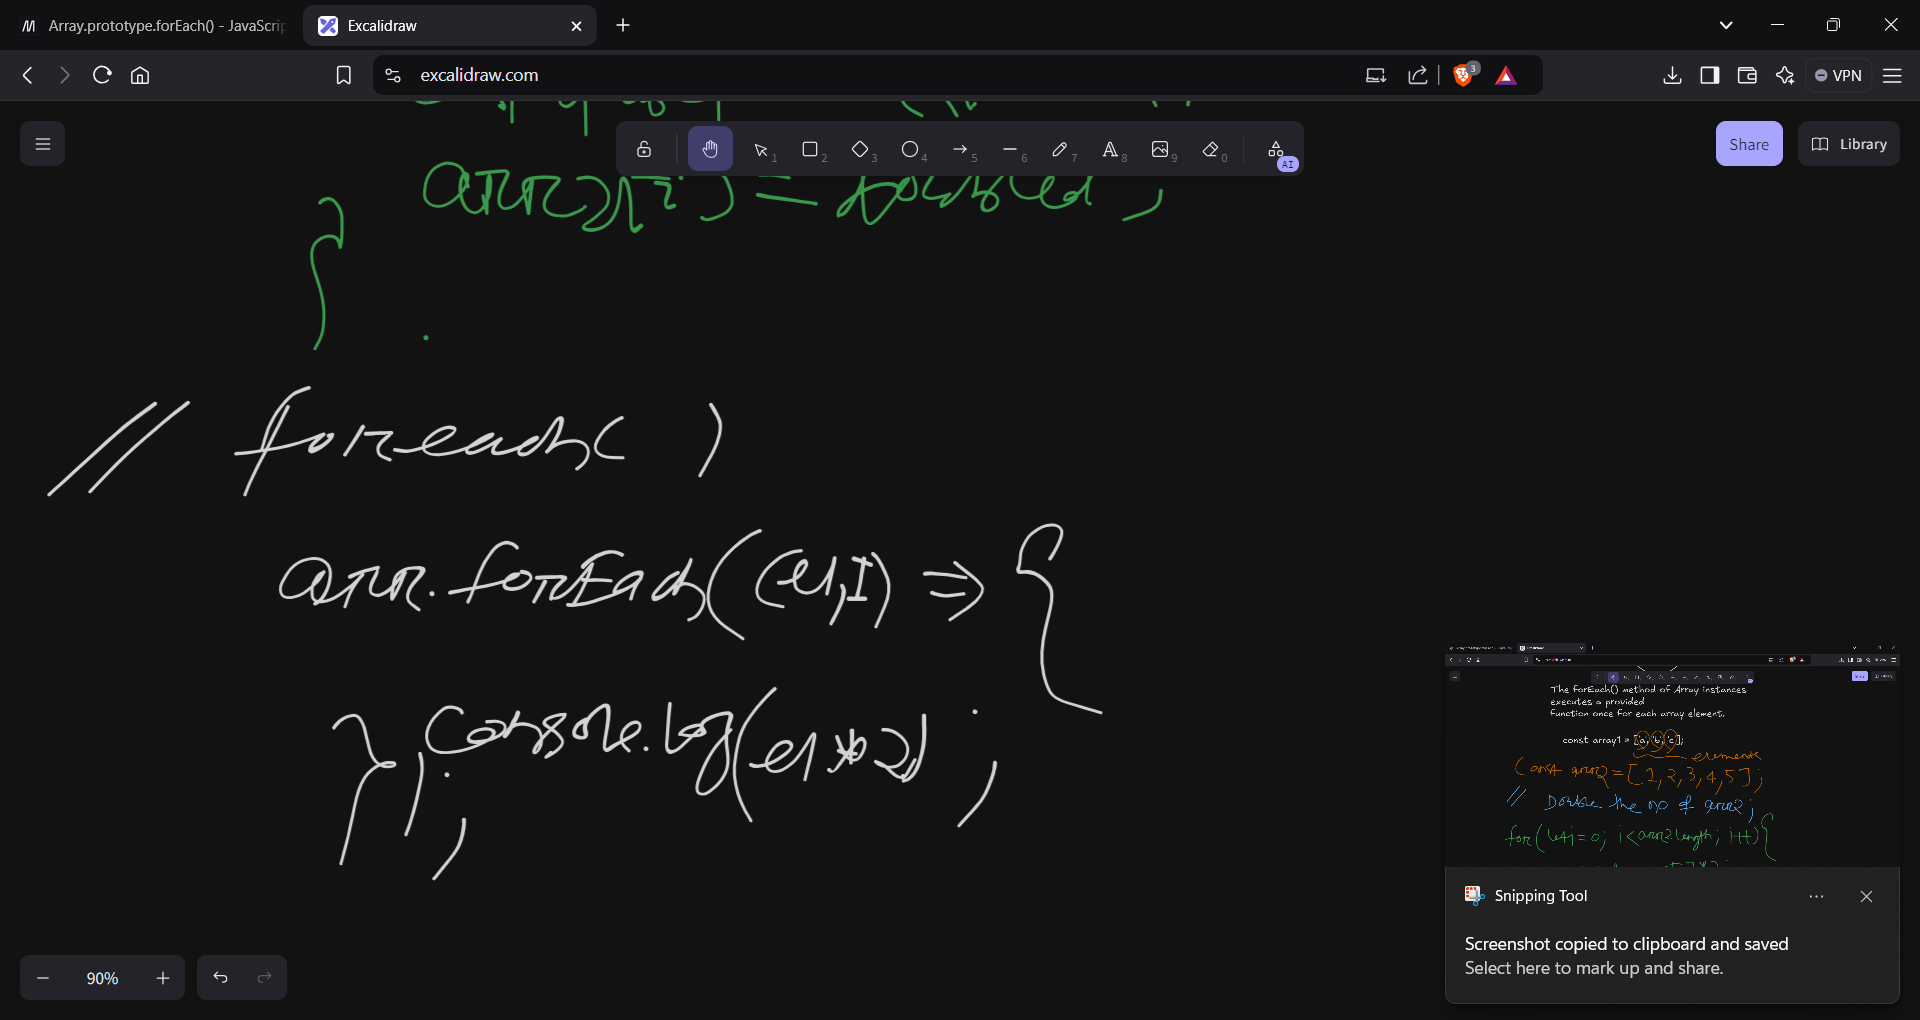 Array.prototype.forEach() - JavaScrip
Excalidraw
excalidraw.com
3
VPN
1
2
3
4
5
6
7
8
9
0
AI
Share
Library
arr2[i] = doubled ;
}
// foreach( )
arr.forEach((el,I) => {
console.log(el*2) ;
});
The forEach() method of Array instances
executes a provided
function once for each array element.
const array1 = ['a', 'b', 'c'];
elements
const arr2 = [1,2,3,4,5];
// Double the no of arr2;
for(let i=0; i<arr2.length; i++){
Snipping Tool
Screenshot copied to clipboard and saved
Select here to mark up and share.
90%